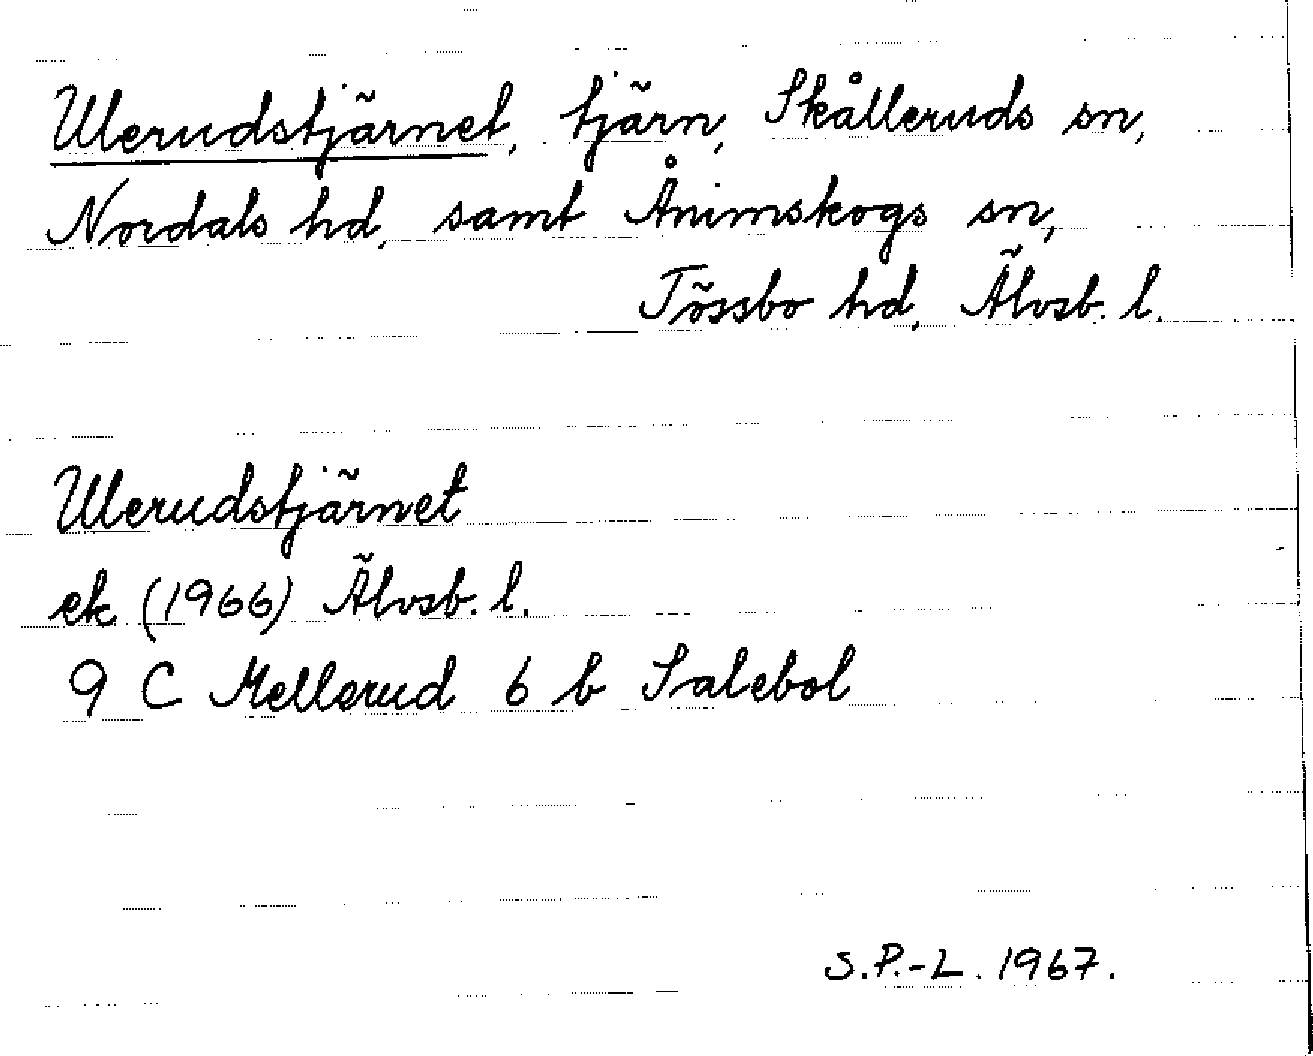 Ulerudstjärnet, tjärn, Skålleruds sn,
Nordals hd, samt Ånimskogs sn,
Tössbo hd, Älvsb. l.
Ulerudstjärnet
ek (1966) Älvsb. l.
9 C Mellerud 6 b Salebol
S.P.-L. 1967.